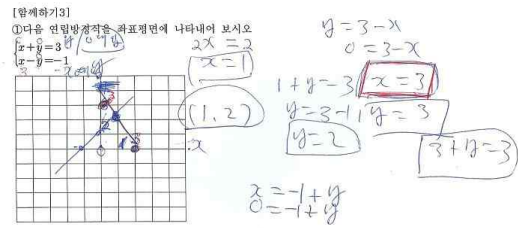 [함께하기3]
①다음 연립방정식을 좌표평면에 나타내어 보시오
x+y=3
x-y=-1
2x = 2
x=1
(1, 2)
y = 3-x
0 = 3-x
x = 3
1+y=3
y=3-1
y=2
y = 3
3+y=3
x = -1+y
0 = -1+y
x